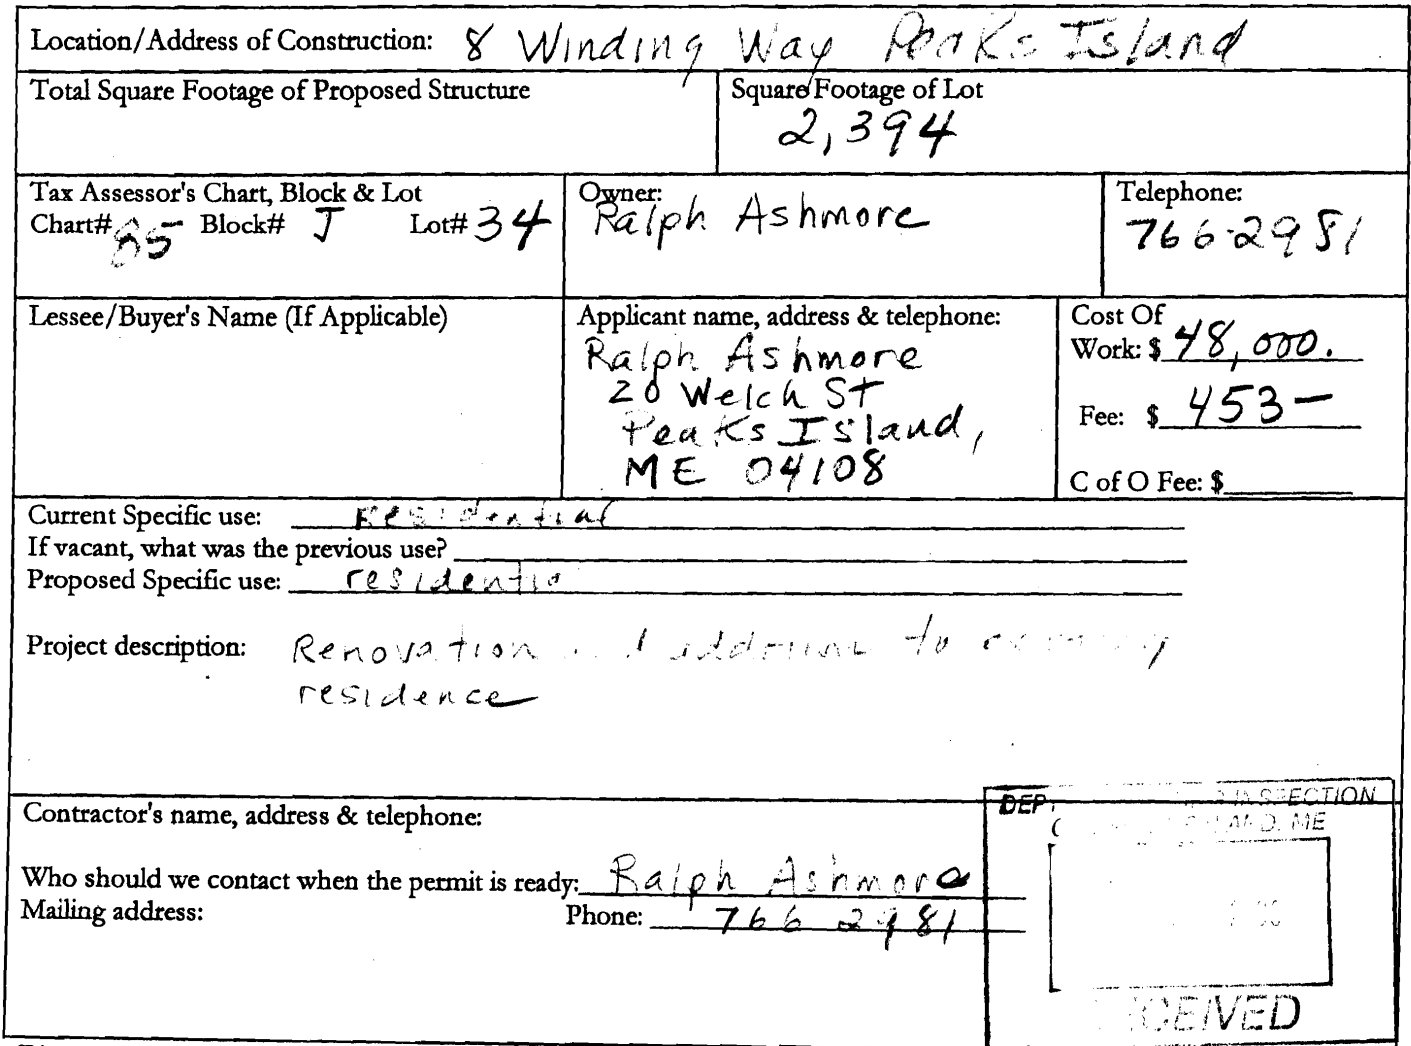 Location/Address of Construction: 8 Winding Way Peaks Island
Total Square Footage of Proposed Structure
Square Footage of Lot
2,394
Tax Assessor's Chart, Block & Lot
Chart# 85 Block# J Lot# 34
Owner:
Ralph Ashmore
Telephone:
766-2981
Lessee/Buyer's Name (If Applicable)
Applicant name, address & telephone:
Ralph Ashmore
20 Welch St
Peaks Island,
ME 04108
Cost Of
Work: $ 48,000.
Fee: $ 453—
C of O Fee: $
Current Specific use: Residential
If vacant, what was the previous use?
Proposed Specific use: residentia
Project description: Renovation to
residence
Contractor's name, address & telephone:
Who should we contact when the permit is ready: Ralph Ashmore
Mailing address: Phone: 766 2981
DEP INSPECTION
ME
CEIVED